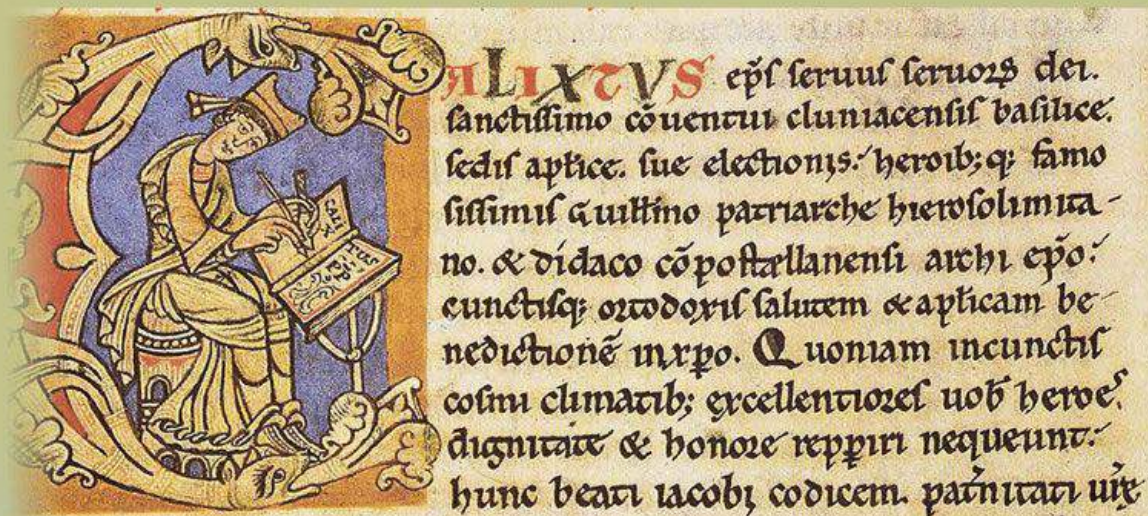 CALIXTVS ep̄s seruus seruoꝝ dei.
sanctissimo cōuentui cluniacensis basilice.
sedis apłice. sue electionis: heroib; q; famo
sissimis Guiłłmo patriarche hierosolimita-
no. & didaco cōpostellanensi archi ep̄o:
cunctisq; ortodoxis salutem & apłicam be-
nedictionē in xp̄o. Quoniam incunctis
cosmi climatib; excellentiores uob̄ heroes
dignitate & honore repꝑiri nequeunt:
hunc beati iacobi codicem. pat̄nitati